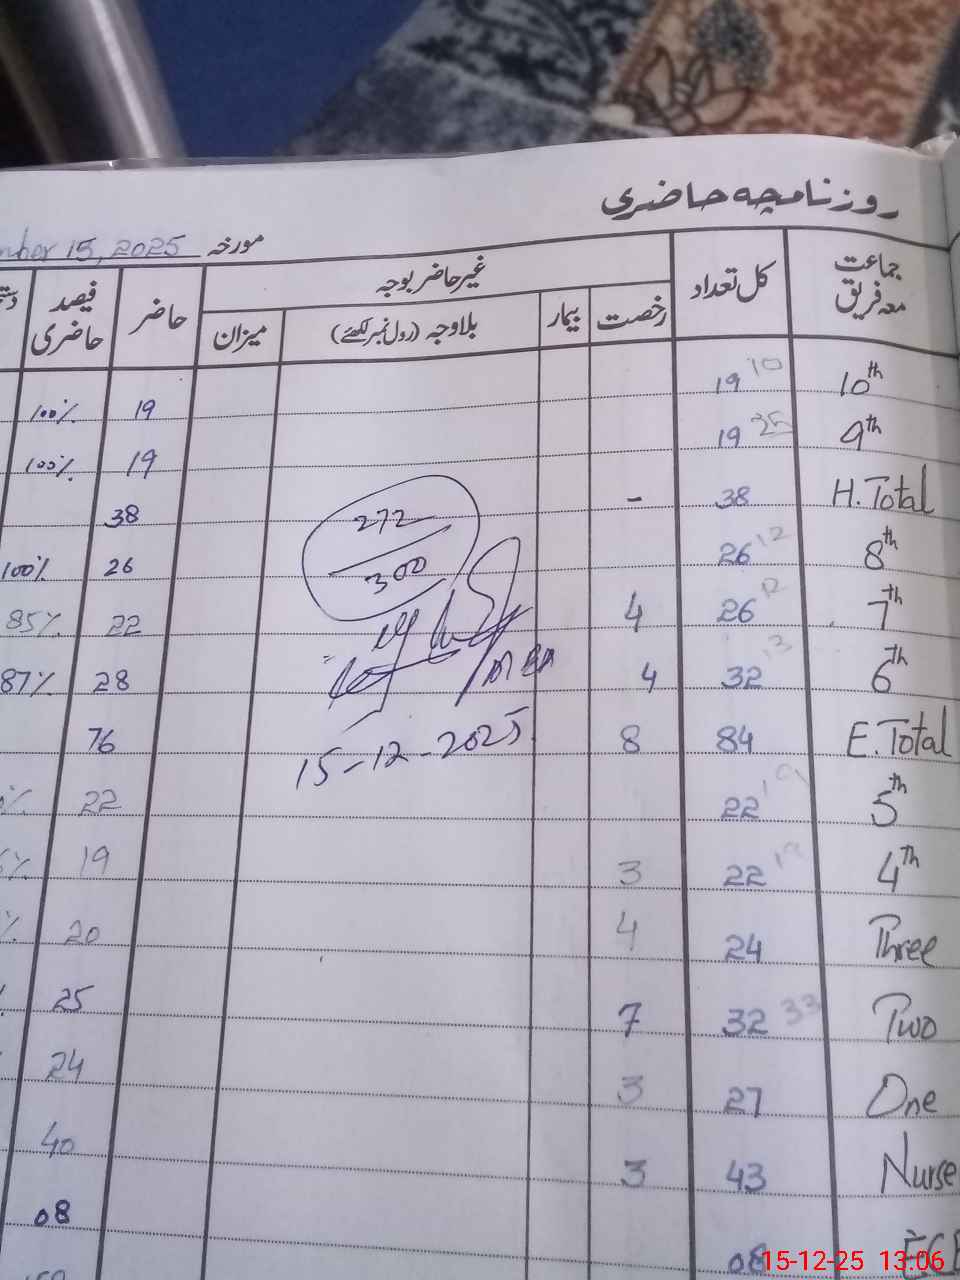 روزنامچہ حاضری
مورخہ mber 15, 2025
جماعت معہ فریق کل تعداد غیر حاضر بوجہ حاضر فیصد حاضری
رخصت بیمار بلاوجہ (رول نمبر لکھئے) میزان
10th 19 10 19 100%
9th 19 25 19 100%
H.Total 38 - 38
8th 26 12 26 100%
7th 26 12 4 22 85%
6th 32 13 4 28 87%
E.Total 84 8 76
5th 22 19 22 %
4th 22 19 3 19 %
Three 24 4 20 %
Two 32 33 7 25
One 27 3 24
Nurse 43 3 40
08 08
272
300
15-12-2025
15-12-25 13:06